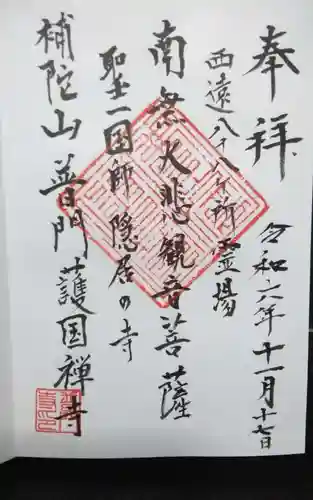 奉拝
令和六年十一月十七日
西遠八十八ヶ所霊場
南無大悲観音菩薩
聖一国師隠居の寺
補陀山普門護国禅寺